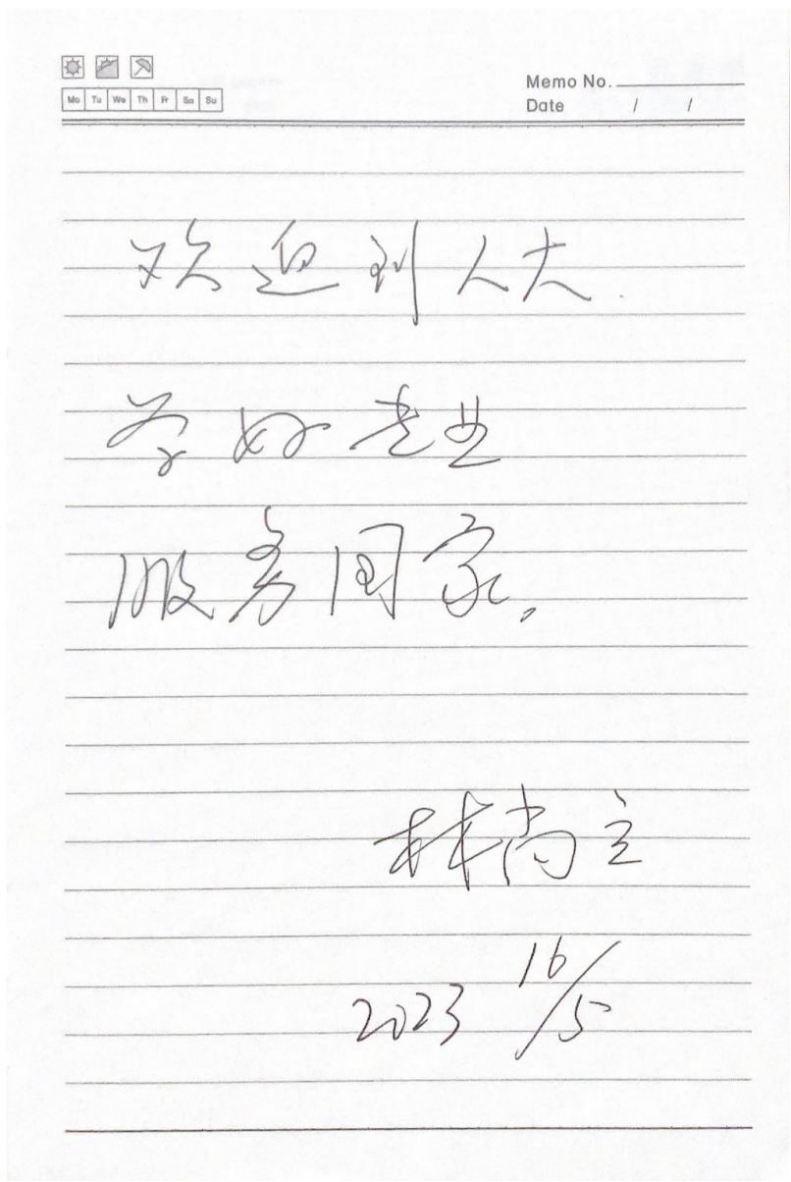 Mo Tu We Th Fr Sa Su
Memo No.
Date / /
欢迎到人大.
学好专业
服务国家。
林尚立
2023 16/5